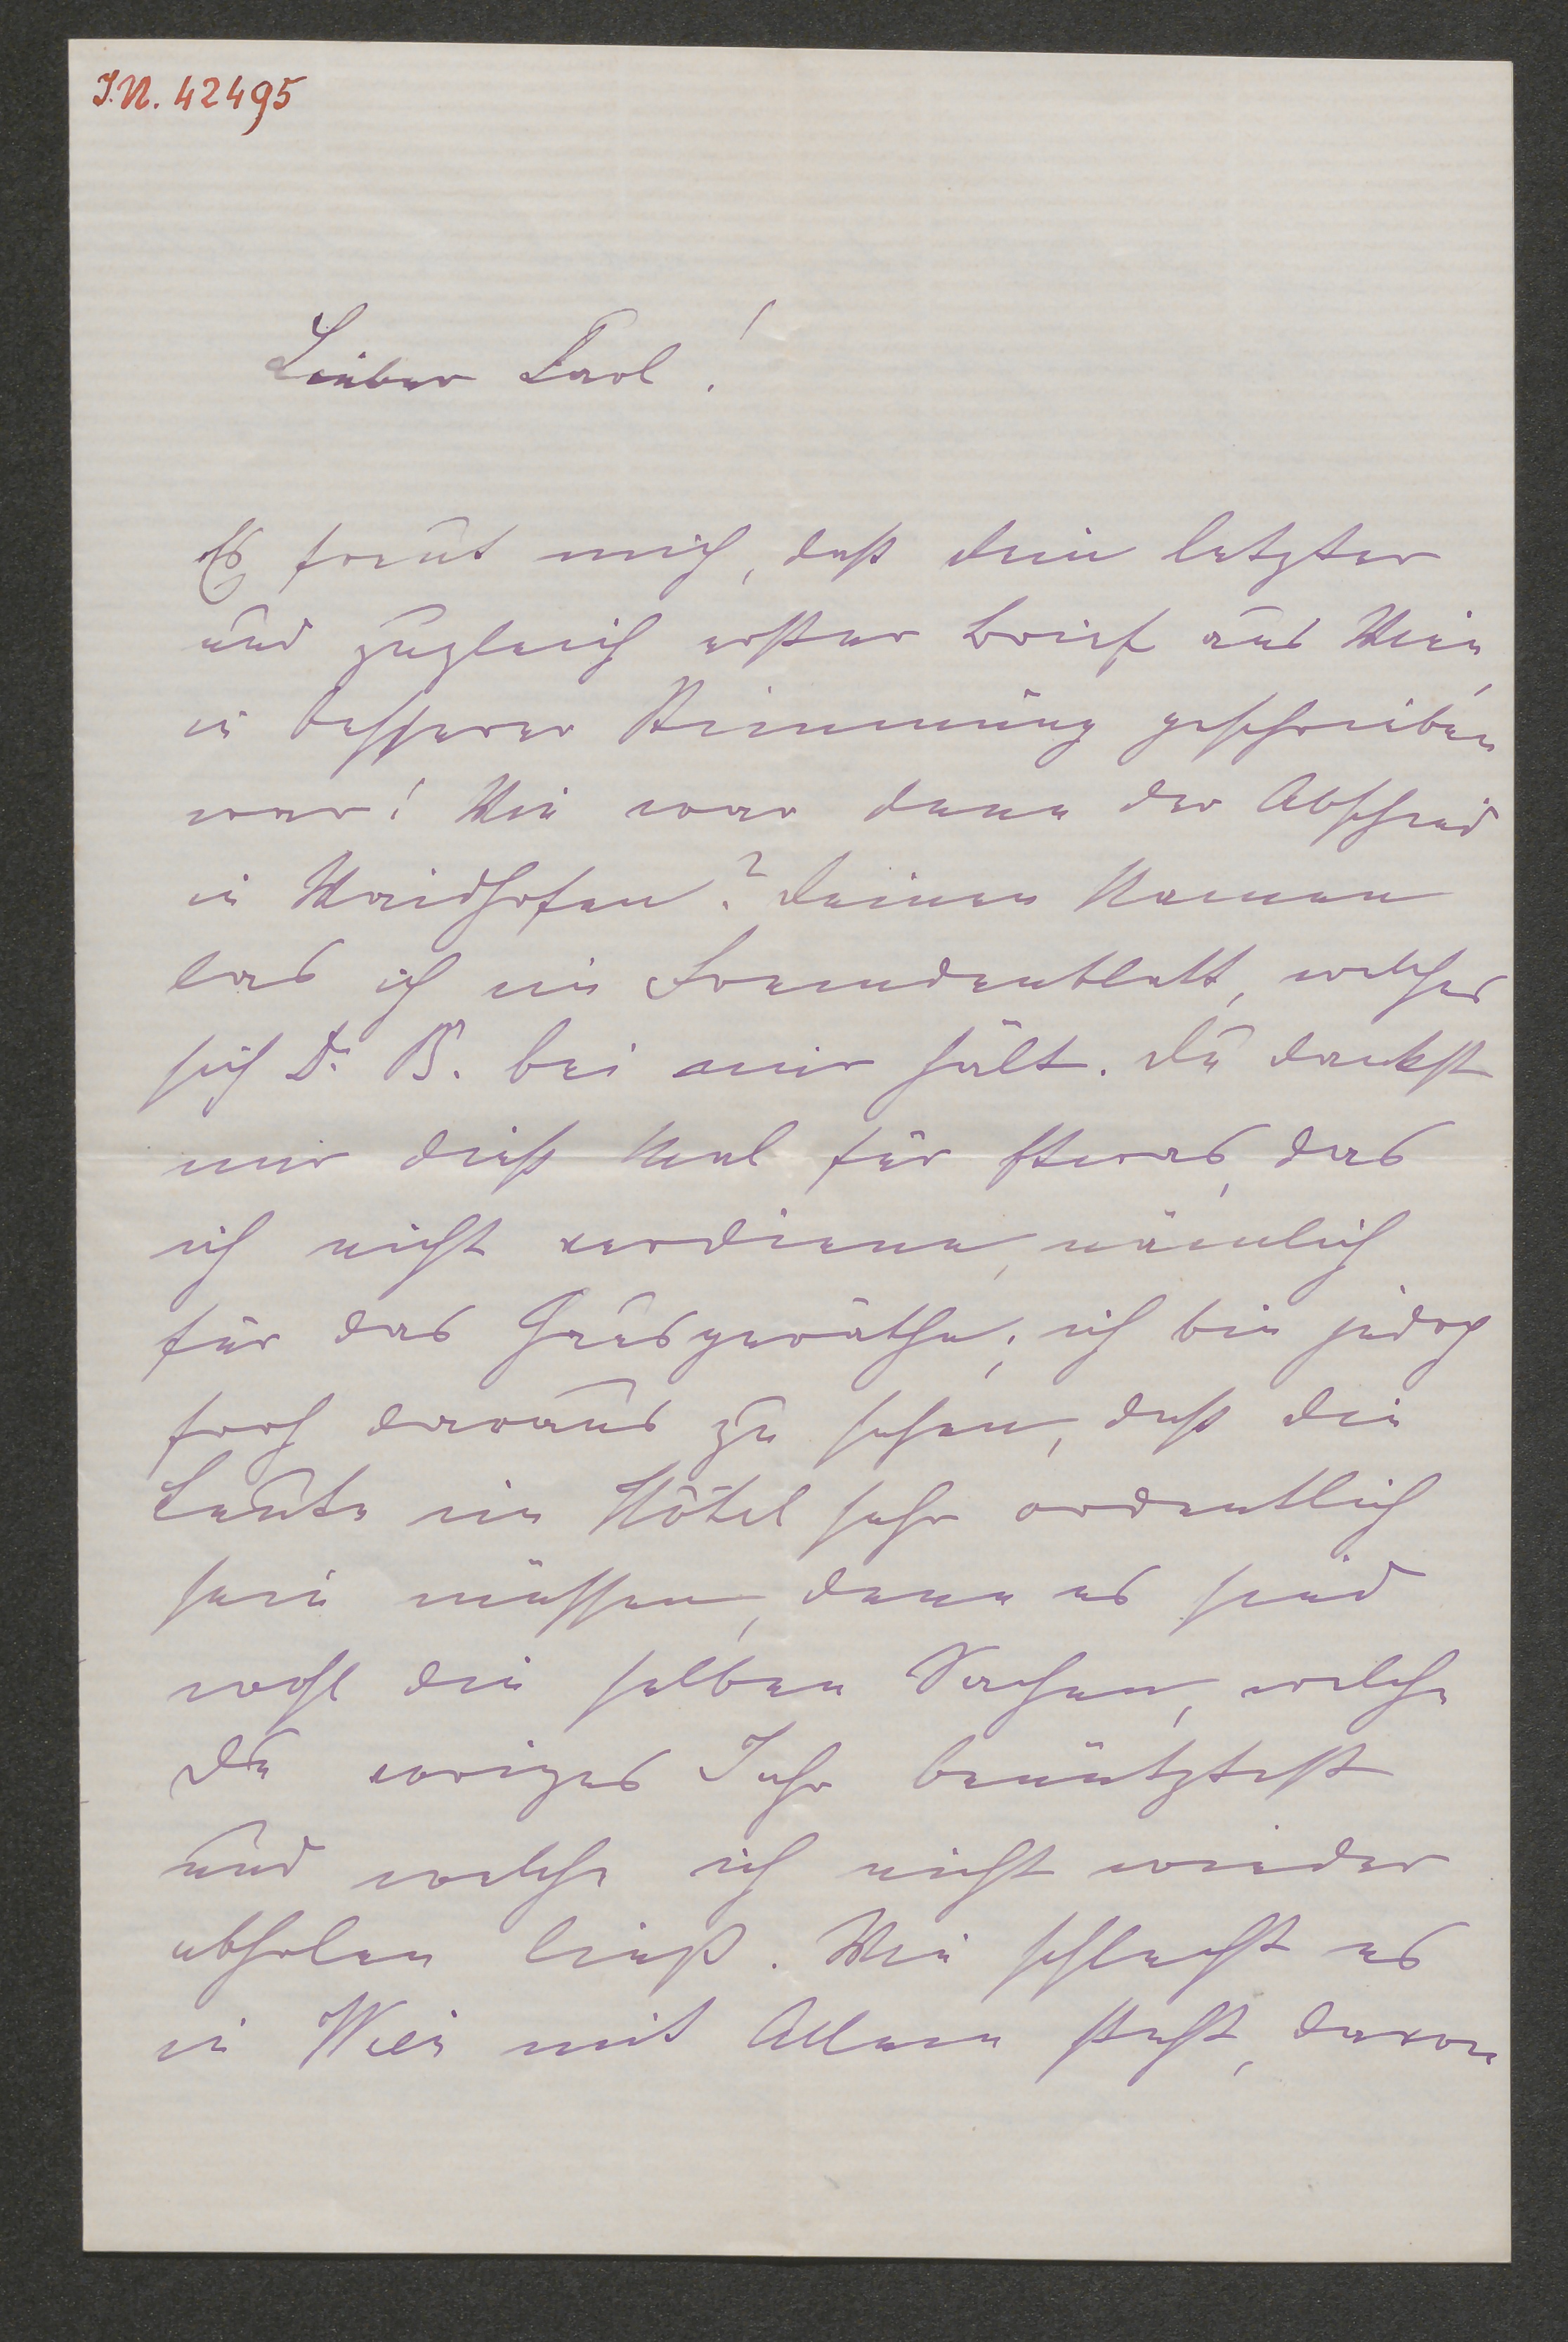 I.N. 42495
Lieber Karl!
Es freut mich, daß dein letzter
und zugleich erster Brief aus Wien,
in besserer Stimmung geschrieben
war! Wie war denn der Abschied
in Waidhofen? Deinen Namen
las ich im Fremdenblatt, welches
sich Dr. B. bei mir hält. Du dankst
mir dieß Mal für Etwas, das
ich nicht verdiene, nämlich
für das Hausgeräthe; ich bin jedoch
froh daraus zu sehen, daß die
Leute im Hôtel sehr ordentlich
sein müssen, denn es sind
wohl die selben Sachen, welche
Du voriges Jahr benütztest
und welche ich nicht wieder
abholen ließ. Wie schlecht es
in Wien mit Allem steht, davon